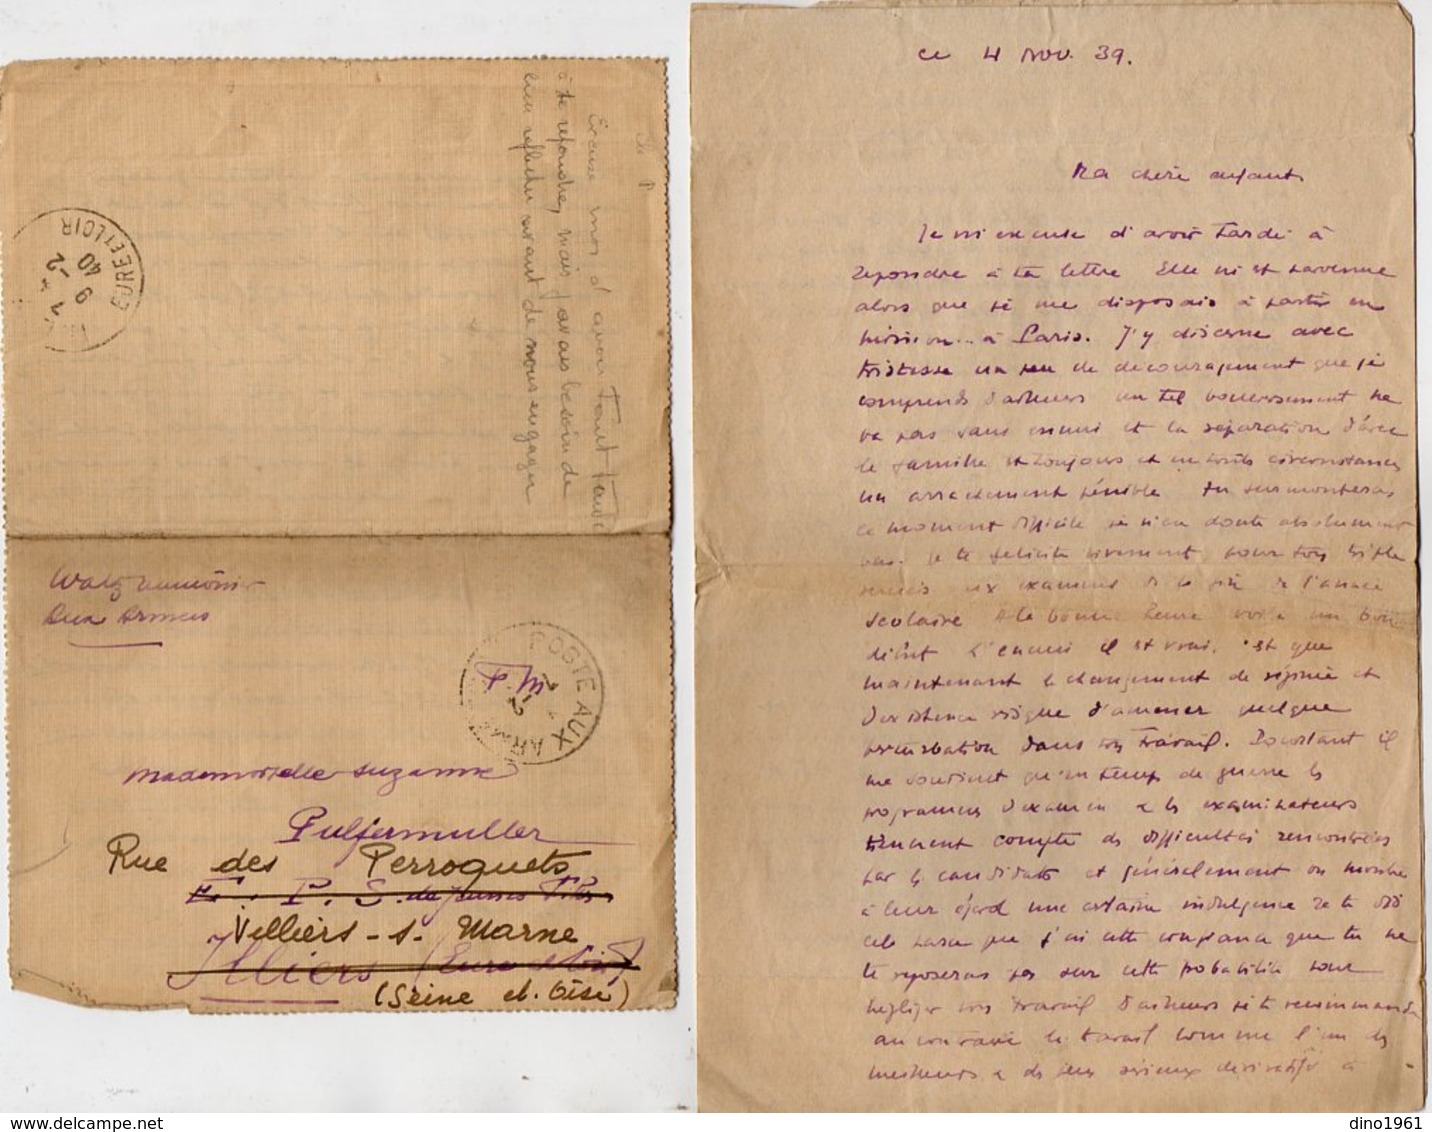 Excuse moi d'avoir tant tardé
à te répondre, mais j'avais besoin de
bien réfléchir avant de nous engager
EURE ET LOIR
9 -2
40
Walz aumônier
Aux Armées
F.M
POSTE AUX ARMEES
Mademoiselle Suzanne
Pulfermuller
Rue des Perroquets
E. P. S. de Jeunes Filles
Villiers-s. Marne
Illiers (Eure et Loir)
(Seine et. Oise)
ce 4 Nov. 39.
Ma chère enfant
Je m'excuse d'avoir tardé à
repondre à ta lettre Elle m'est parvenue
alors que je me disposais à partir en
mission .. à Paris. J'y discerne avec
tristesse un peu de découragement que je
comprends d'ailleurs un tel bouversement ne
va pas sans ennui et la séparation d'avec
la famille est toujours et en toutes circonstances
un arrachement pénible Tu surmonteras
ce moment difficile je n'en doute absolument
pas. Je te felicite vivement pour ton triple
succès aux examens de la fin de l'année
scolaire A la bonne heure voilà un bon
début L'ennui il est vrai, c'est que
maintenant le changement de régime et
d'existence risque d'amener quelque
perturbation dans ton travail. Pourtant il
me souvient qu'en temps de guerre les
programmes d'examen et les examinateurs
tiennent compte des difficultés rencontrées
par les candidats et généralement on montre
à leur égard une certaine indulgence Je te dis
cela parce que j'ai cette confiance que tu ne
te reposeras pas sur cette probabilité pour
négliger ton travail D'ailleurs je te recommande
au contraire le travail comme l'un des
meilleurs et des plus sérieux dérivatifs à
dino1961